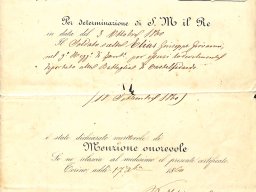 Per determinazione di S. M. il Re
in data del 3 Ottobre 1860
Il Soldato Elia Giuseppe Giovanni
nel 9° Regg.to di Fant.
deportato alla Battaglia di Castelfidardo
(18 Settembre 1860)
è stato dichiarato meritevole di
Menzione onorevole
Se ne rilascia al medesimo il presente certificato.
Torino, addì 1860